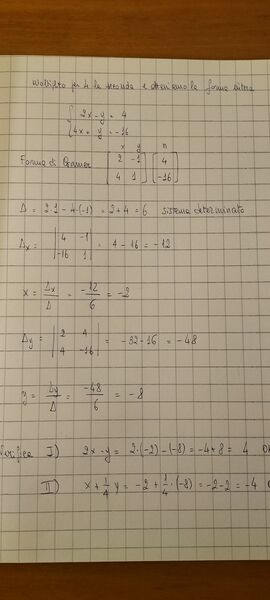 moltiplico per 4 la seconda e otteniamo la forma intera
{ 2x - y = 4
{ 4x + y = -16
x y n
Forma di Cramer [ 2 -1 ] [ 4 ]
[ 4 1 ] [ -16 ]
Δ = 2·1 - 4·(-1) = 2 + 4 = 6 sistema determinato
Δx = | 4 -1 | = 4 - 16 = -12
| -16 1 |
x = Δx/Δ = -12/6 = -2
Δy = | 2 4 | = -32 - 16 = -48
| 4 -16 |
y = Δy/Δ = -48/6 = -8
Verifica I) 2x - y = 2·(-2) - (-8) = -4 + 8 = 4
II) x + 1/4 y = -2 + 1/4·(-8) = -2 - 2 = -4